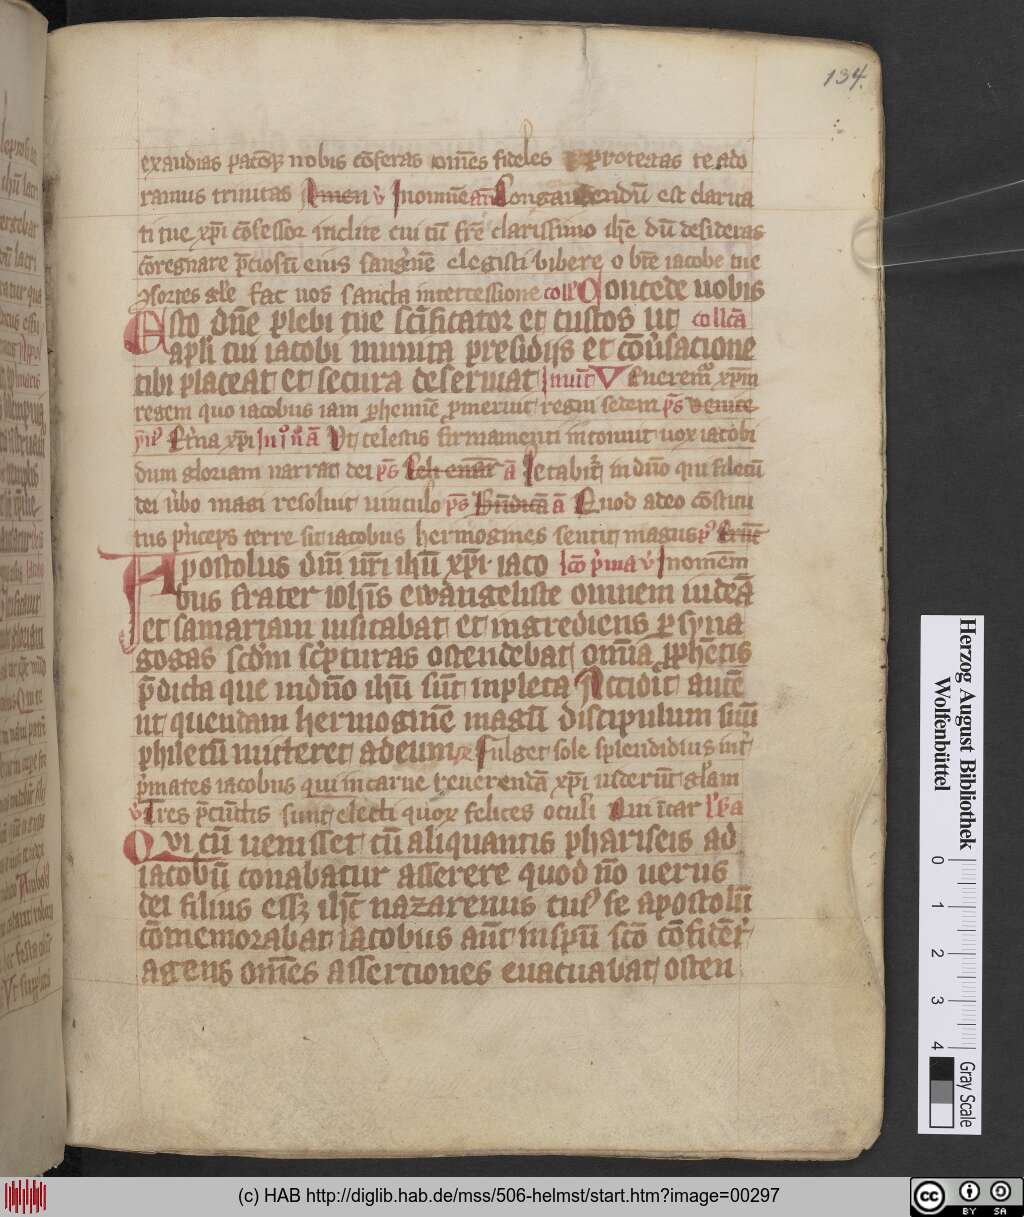 134.
exaudias pacēq; nobis cōferas om̄es fideles protegas te ado
ramus trinitas Amen v̓ In om̄e an̄ Longaudendū est clarita
ti tue xp̄i cōfessor inclite cui cū fr̄e clarissimo ih̄e dū desideras
cōregnare p̄ciosū eius sangnē elegisti bibere o bt̄e iacobe tue
ꝯsortes gl̄e fac nos sancta intercessione coll' Concede nobis
Esto dn̄e plebi tue sc̄ificator et custos ut collcā
apl̄i tui iacobi munita presidijs et cōu̓sacione
tibi placeat et secura deseruiat Inuit̄ Veneremꝰ xp̄m
regem quo iacobus iam perhenne promeruit regni sedem ps̄ Venite
Et̓na xp̄i In iº nº ā Vt celestis firmamenti intonuit uox iacobi
dum gloriam narrat dei ps̄ Celi enarr̄ ā Letabit̓ in dn̄o qui filetū
dei u̓bo magi resoluit uinculo ps̄ Bn̄dicā ā Quod adeo cōstitu
tus p̓nceps terre sit iacobus hermogines sentit magus
Apostolus dn̄i nr̄i ih̄u xp̄i iaco lc̄o p̓ma v̓ In om̄em
bus frater ioh̄is ewangeliste omnem iudeā
et samariam uisitabat et ingrediens per syna
gogas scd̄m sc̓pturas ostendebat om̄ia a pphetis
p̄dicta que in dn̄o ih̄u sūt inpleta Accidit autē
ut quendam hermoginē magū discipulum suū
philetū mitteret ad eum Fulget sole splendidius int̓
p̓mates iacobus qui in carne reuerendā xp̄i uiderūt gl̄am
v̓ Tres p̄cūctis sunt electi quor felices oculi Qui ī car
Qui cū uenisset cū aliquantis phariseis ad
iacobū conabatur asserere quod nō uerus
dei filius ess; ih̄c nazarenus cuiꝰ se apostolū
cōmemorabat iacobus aūt in sp̄u sc̄o cōfidēt̓
agens om̄es assertiones euacuabat osten
Herzog August Bibliothek
Wolfenbüttel
0 1 2 3 4
Gray Scale
(c) HAB http://diglib.hab.de/mss/506-helmst/start.htm?image=00297
cc BY SA